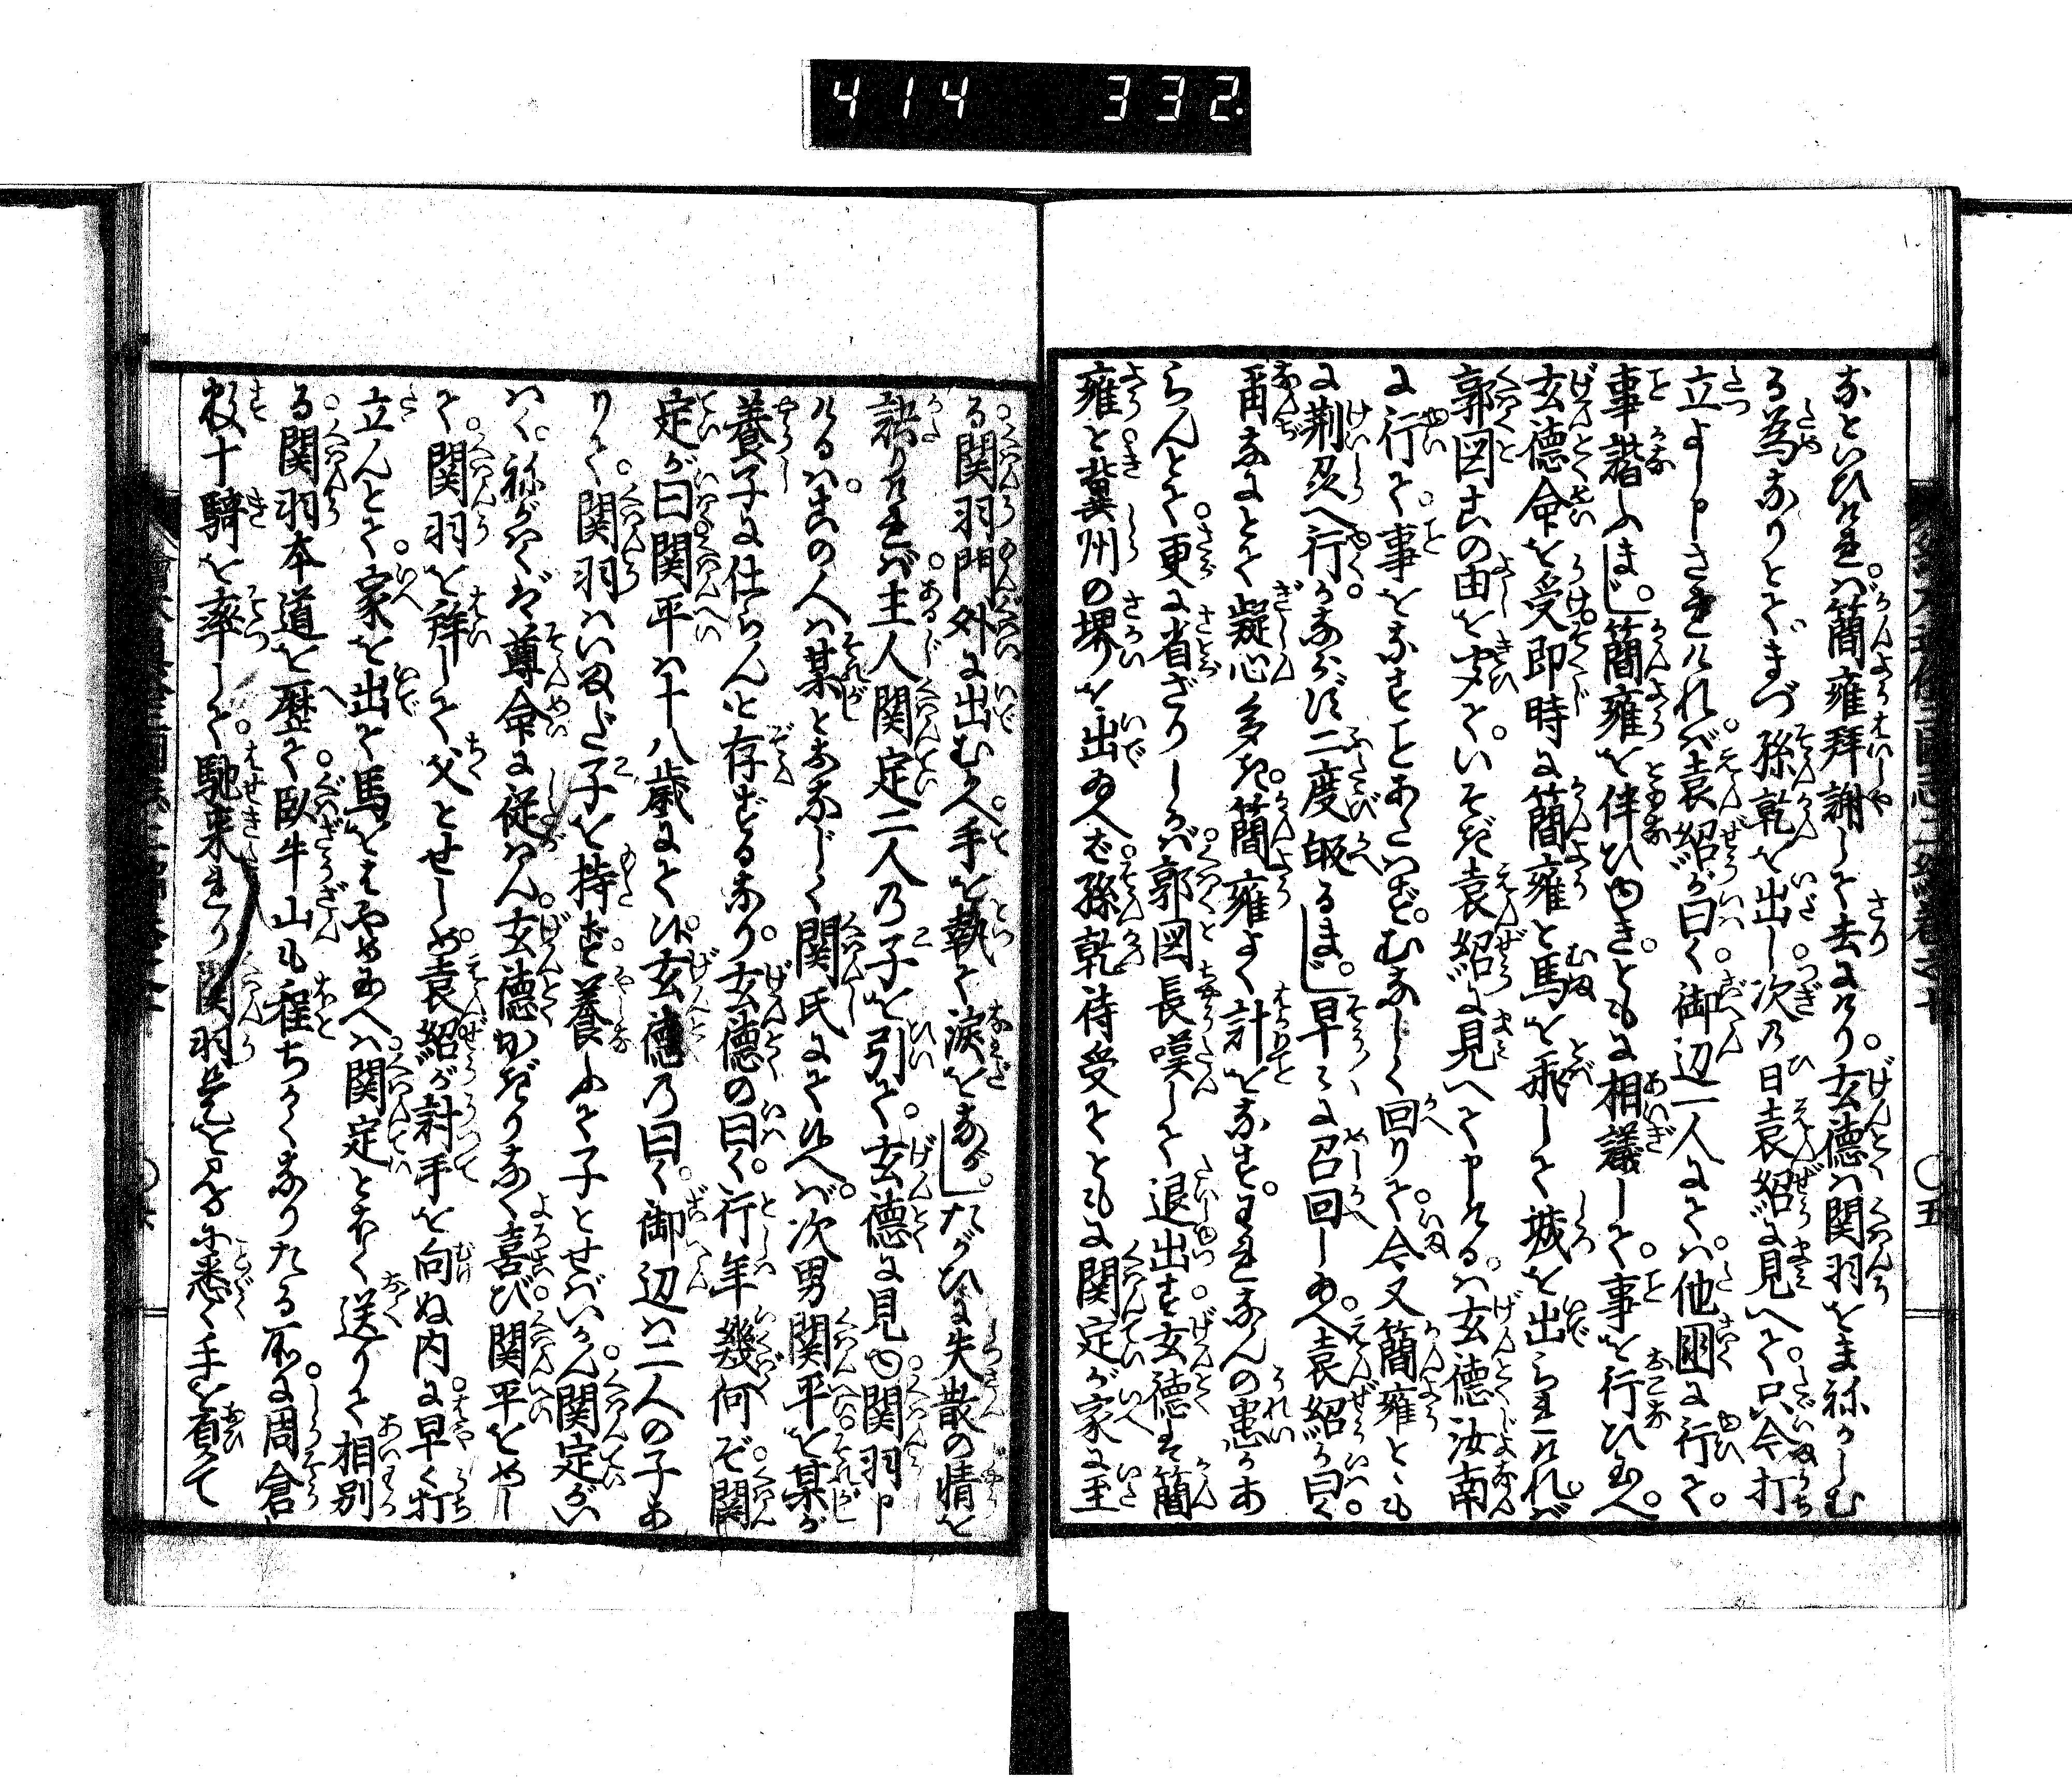 414 332
なといひければ簡雍拝謝して去にけり玄徳は関羽をまねかしむ
る為なりとぞまづ孫乾を出し次の日袁紹に見へて只今打
立よし申されければ袁紹が曰く御辺一人にては他国に行て
事諧ふまじ簡雍を伴ひゆきともに相議して事を行ひ玉へ
玄徳命を受即時に簡雍と馬を飛して城を出られければ
郭図此の由を聞ていそぎ袁紹に見へて申けるは玄徳汝南
に行て事をなすことあたはずむなしく回りて今又簡雍とゝも
に荊州へ行かならず二度皈るまじ早々に召回し玉へ袁紹が曰く
汝なにとて疑心多き簡雍よく計をなすまことなんの患かあ
らんとて更に省ざりしかば郭図長嘆して退出す玄徳は簡
雍と冀州の堺を出玉へば孫乾待受てともに関定が家に至
る関羽門外に出むかへ手を執て涙をながしたがひに失散の情を
訴りければ主人関定二人の子を引て玄徳に見ゆ関羽申
けるは此の人は某とおなじく関氏にて候へば次男関平を某が
養子に仕らんと存ずるなり玄徳の曰く行年幾何ぞ関
定が曰関平は十八歳にて候玄徳の曰く御辺は二人の子あ
りて関羽はいまだ子を持ず養ふて子とせばいかん関定がい
はくねがはくは尊命に従はん玄徳かぎりなく喜び関平をめし
て関羽を拜して父とせしめ袁紹が討手を向ぬ内に早く打
立んとて家を出て馬をはやめ玉へば関定とほく送りて相別
る関羽本道を歴て臥牛山も程ちかくなりたる所に周倉
数十騎を率して馳来れり関羽是を見るに悉く手を負て